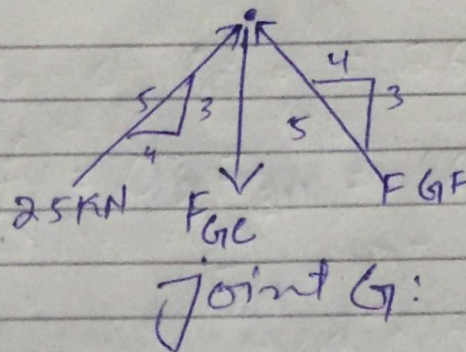 4
5 3 3
4 5
25KN FGC FGF
joint G: